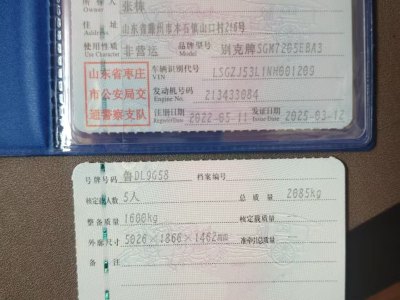 所有人 张栋
Owner
住址 山东省滕州市木石镇山口村216号
Address
使用性质 非营运 品牌型号 别克牌SGM7206EBA3
Use Character Model
山东省枣庄市公安局交通警察支队
车辆识别代号 LSGZJ53L1NH001209
VIN
发动机号码 213433084
Engine No.
注册日期 2022-05-11 发证日期 2025-03-12
Register Date Issue Date
号牌号码 鲁DL9G58 档案编号
核定载人数 5人 总质量 2085kg
整备质量 1600kg 核定载质量
外廓尺寸 5026×1866×1462mm 准牵引总质量
备注